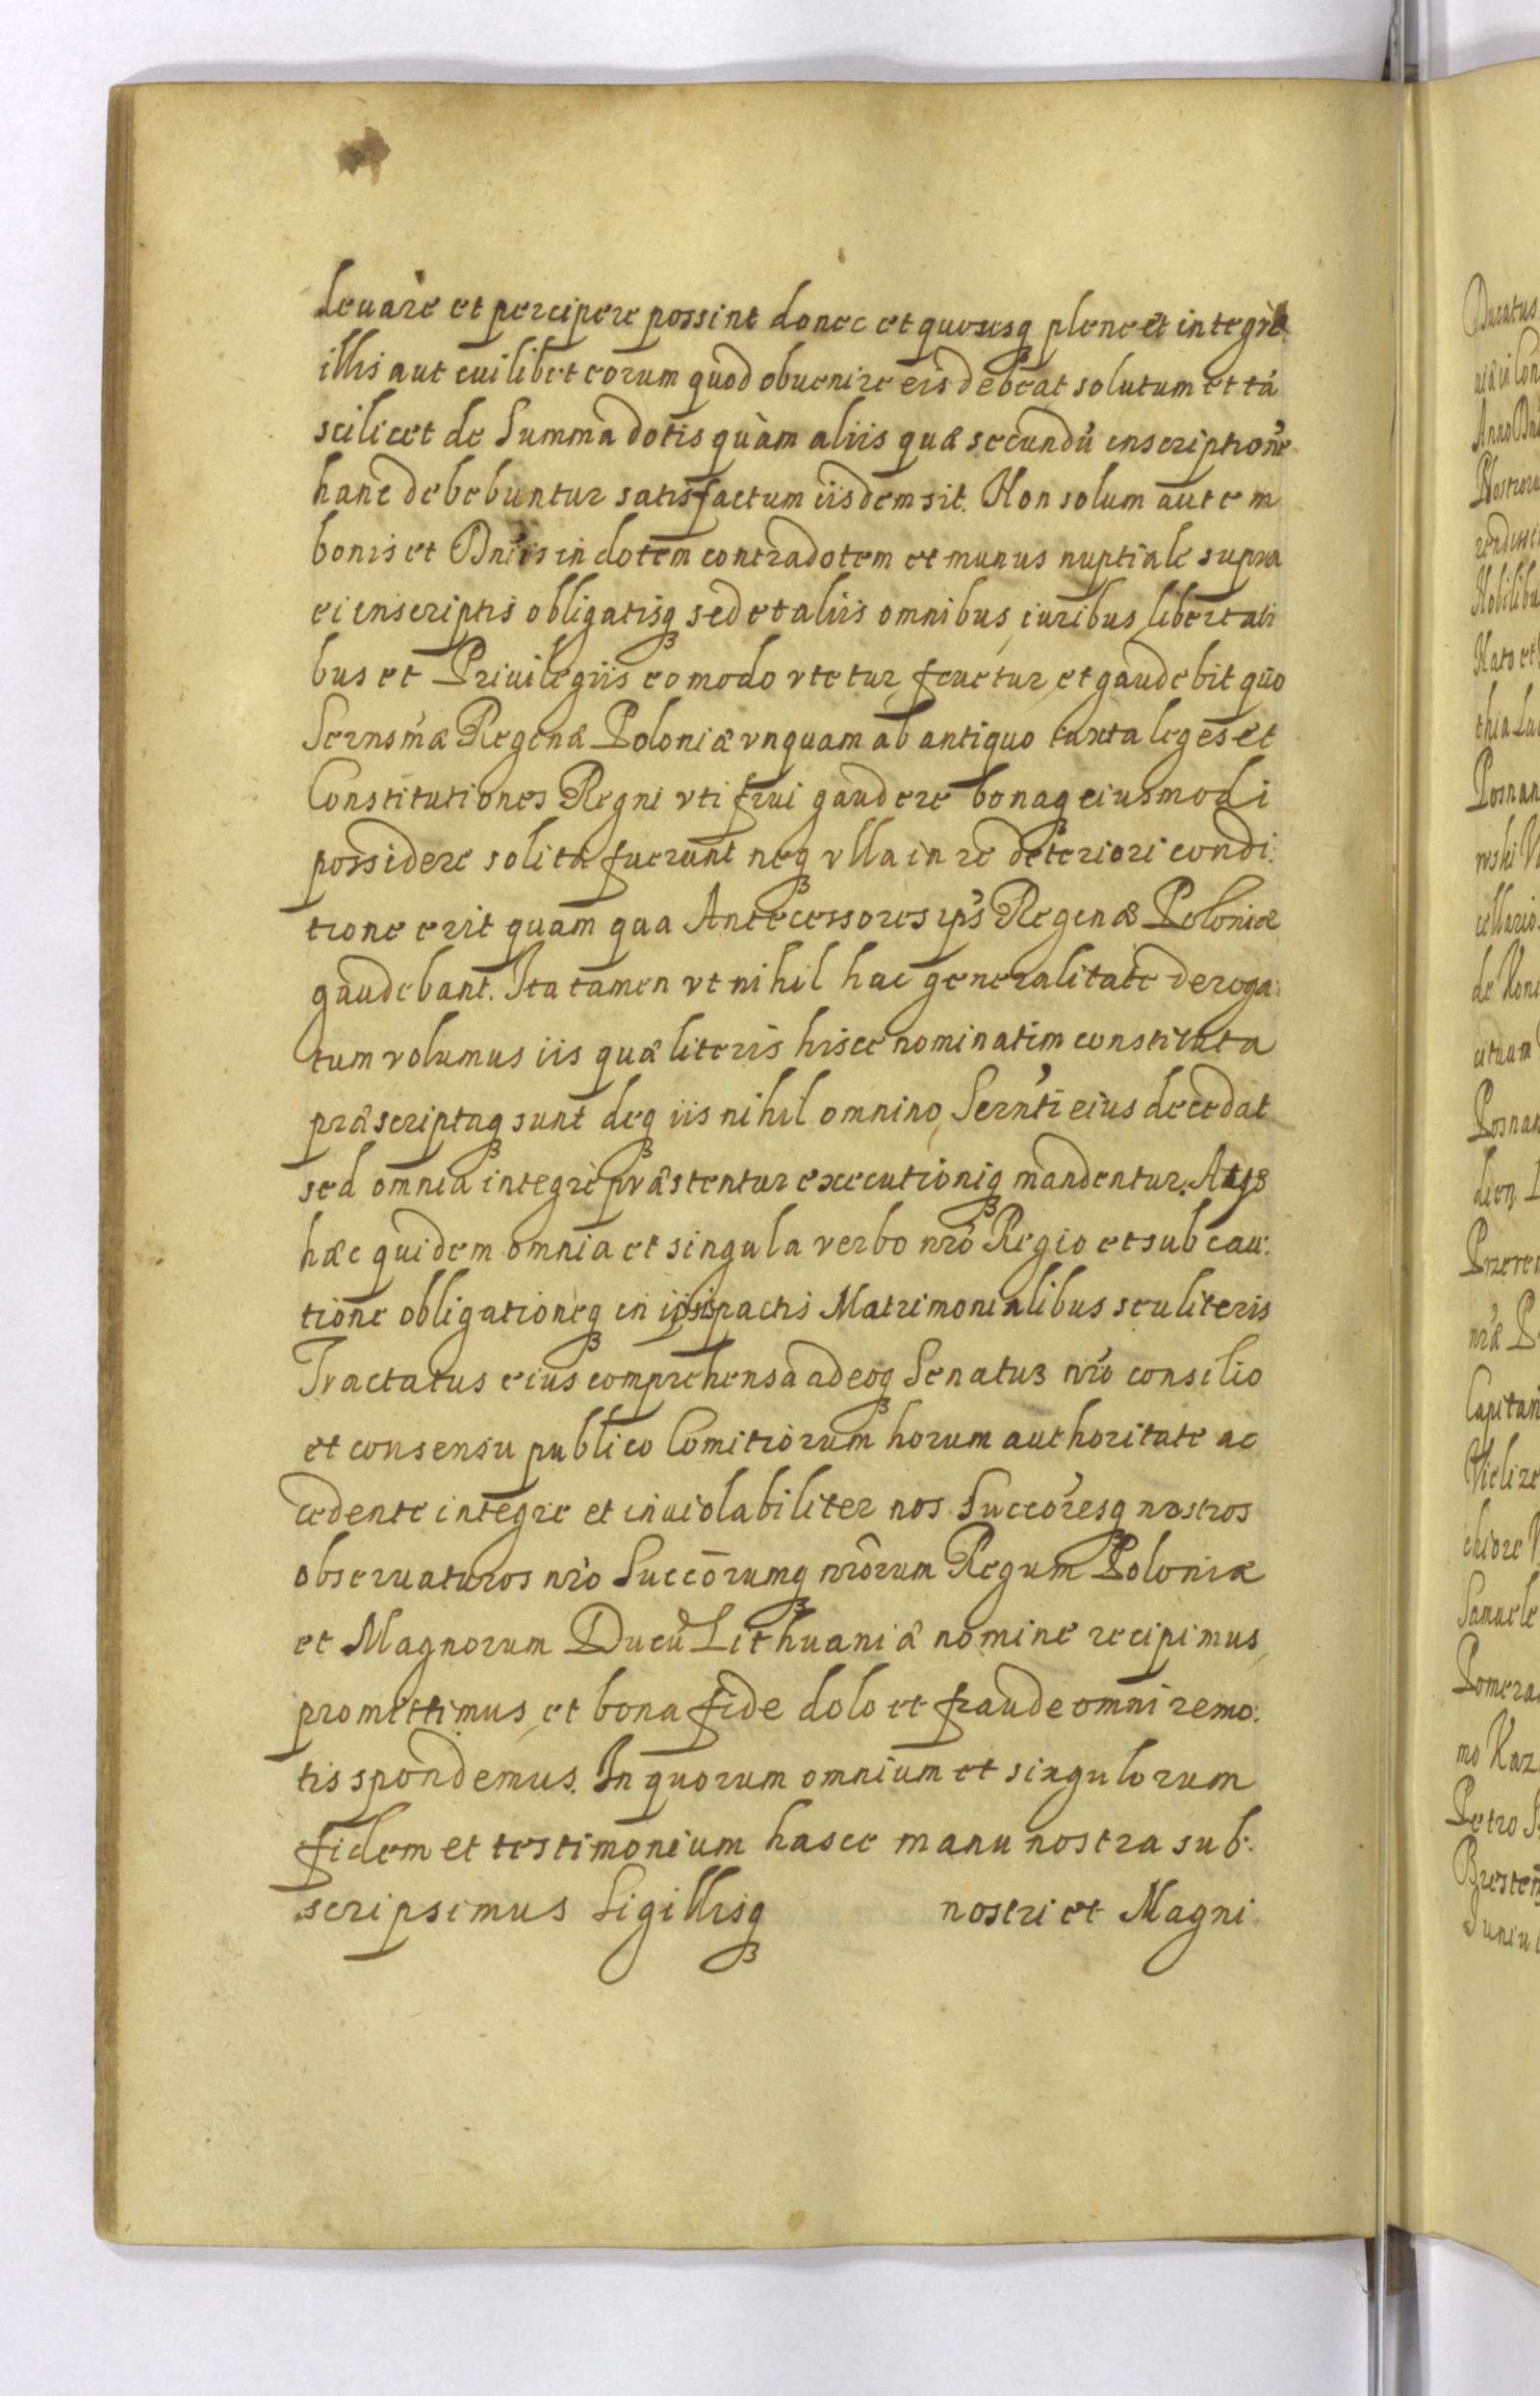 leuare et percipere possint donec et quousq3 plene et integre
illis aut cuilibet eorum quod obuenire eis debeat solutum et tá
scilicet de Summa dotis quàm aliis quæ secundū inscriptionē
hanc debebuntur satisfactum iisdem sit. Non solum autem
bonis et Dn̄iis in dotem contradotem et munus nuptiale supra
ei inscriptis obligatisq3 sed et aliis omnibus, iuribus, libertati
bus et Priuilegiis eo modo vtetur, fruetur, et gaudebit quo
Sernsm̄æ Reginæ Poloniæ vnquam ab antiquo iuxta leges et
Constitutiones Regni vti frui gaudere bonaq3 eiusmodi
possidere solitæ fuerunt neq3 vlla in re deteriori condi:
tione erit quam qua Antecessores ips̄ Reginæ Poloniæ
gaudebant. Ita tamen vt nihil hac generalitate deroga:
tum volumus iis quæ literis hisce nominatim constituta
præscriptaq3 sunt deq3 iis nihil omnino, Sern̄ti eius decedat
sed omnia integrè præstentur executioniq3 mandentur. Atq3
hæc quidem omnia et singula verbo nr̄o Regio et sub cau:
tione obligationeq3 in ipsis pactis Matrimonialibus seu literis
Tractatus eius comprehensa adeoq3 Senatus nr̄o consilio
et consensu publico Comitiorum horum authoritate ac
cedente integre et inuiolabiliter nos Succōresq3 nostros
obseruaturos nr̄o Succōrumq3 nr̄orum Regum Poloniæ
et Magnorum Ducū Lithuaniæ nomine recipimus,
promittimus, et bona fide dolo et fraude omni remo:
tis spondemus. In quorum omnium et singulorum
fidem et testimonium hasce manu nostra sub:
scripsimus Sigillisq3 nostri et Magni
Ducatus
Anno
Posnan
de
Posnan
Samuele
Petro